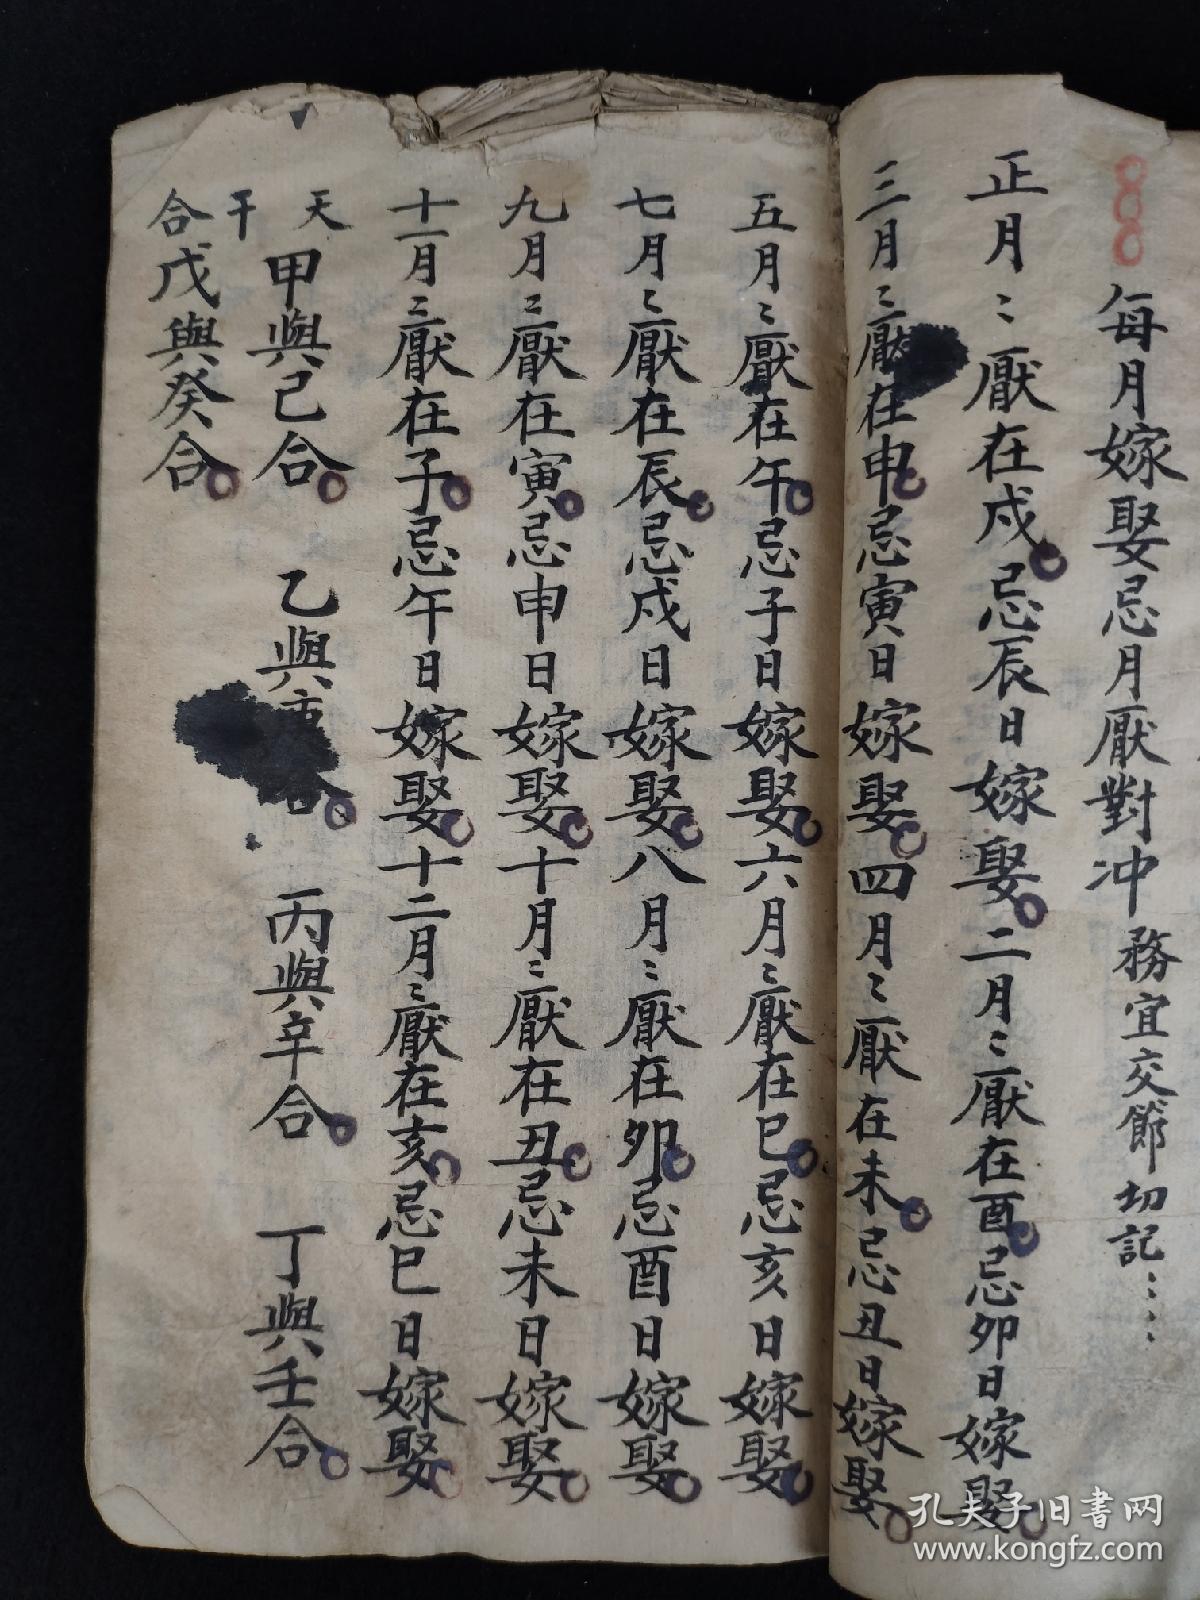 每月嫁娶忌月厭對冲務宜交節切記:::
正月:二厭在戌忌辰日嫁娶二月:二厭在酉忌卯日嫁娶
三月:二厭在申忌寅日嫁娶四月:二厭在未忌丑日嫁娶
五月:二厭在午忌子日嫁娶六月:二厭在巳忌亥日嫁娶
七月:二厭在辰忌戌日嫁娶八月:二厭在卯忌酉日嫁娶
九月:二厭在寅忌申日嫁娶十月:二厭在丑忌未日嫁娶
十一月:二厭在子忌午日嫁娶十二月:二厭在亥忌巳日嫁娶
天干合
甲與己合 乙與庚合 丙與辛合 丁與壬合
戊與癸合
孔夫子旧书网
www.kongfz.com